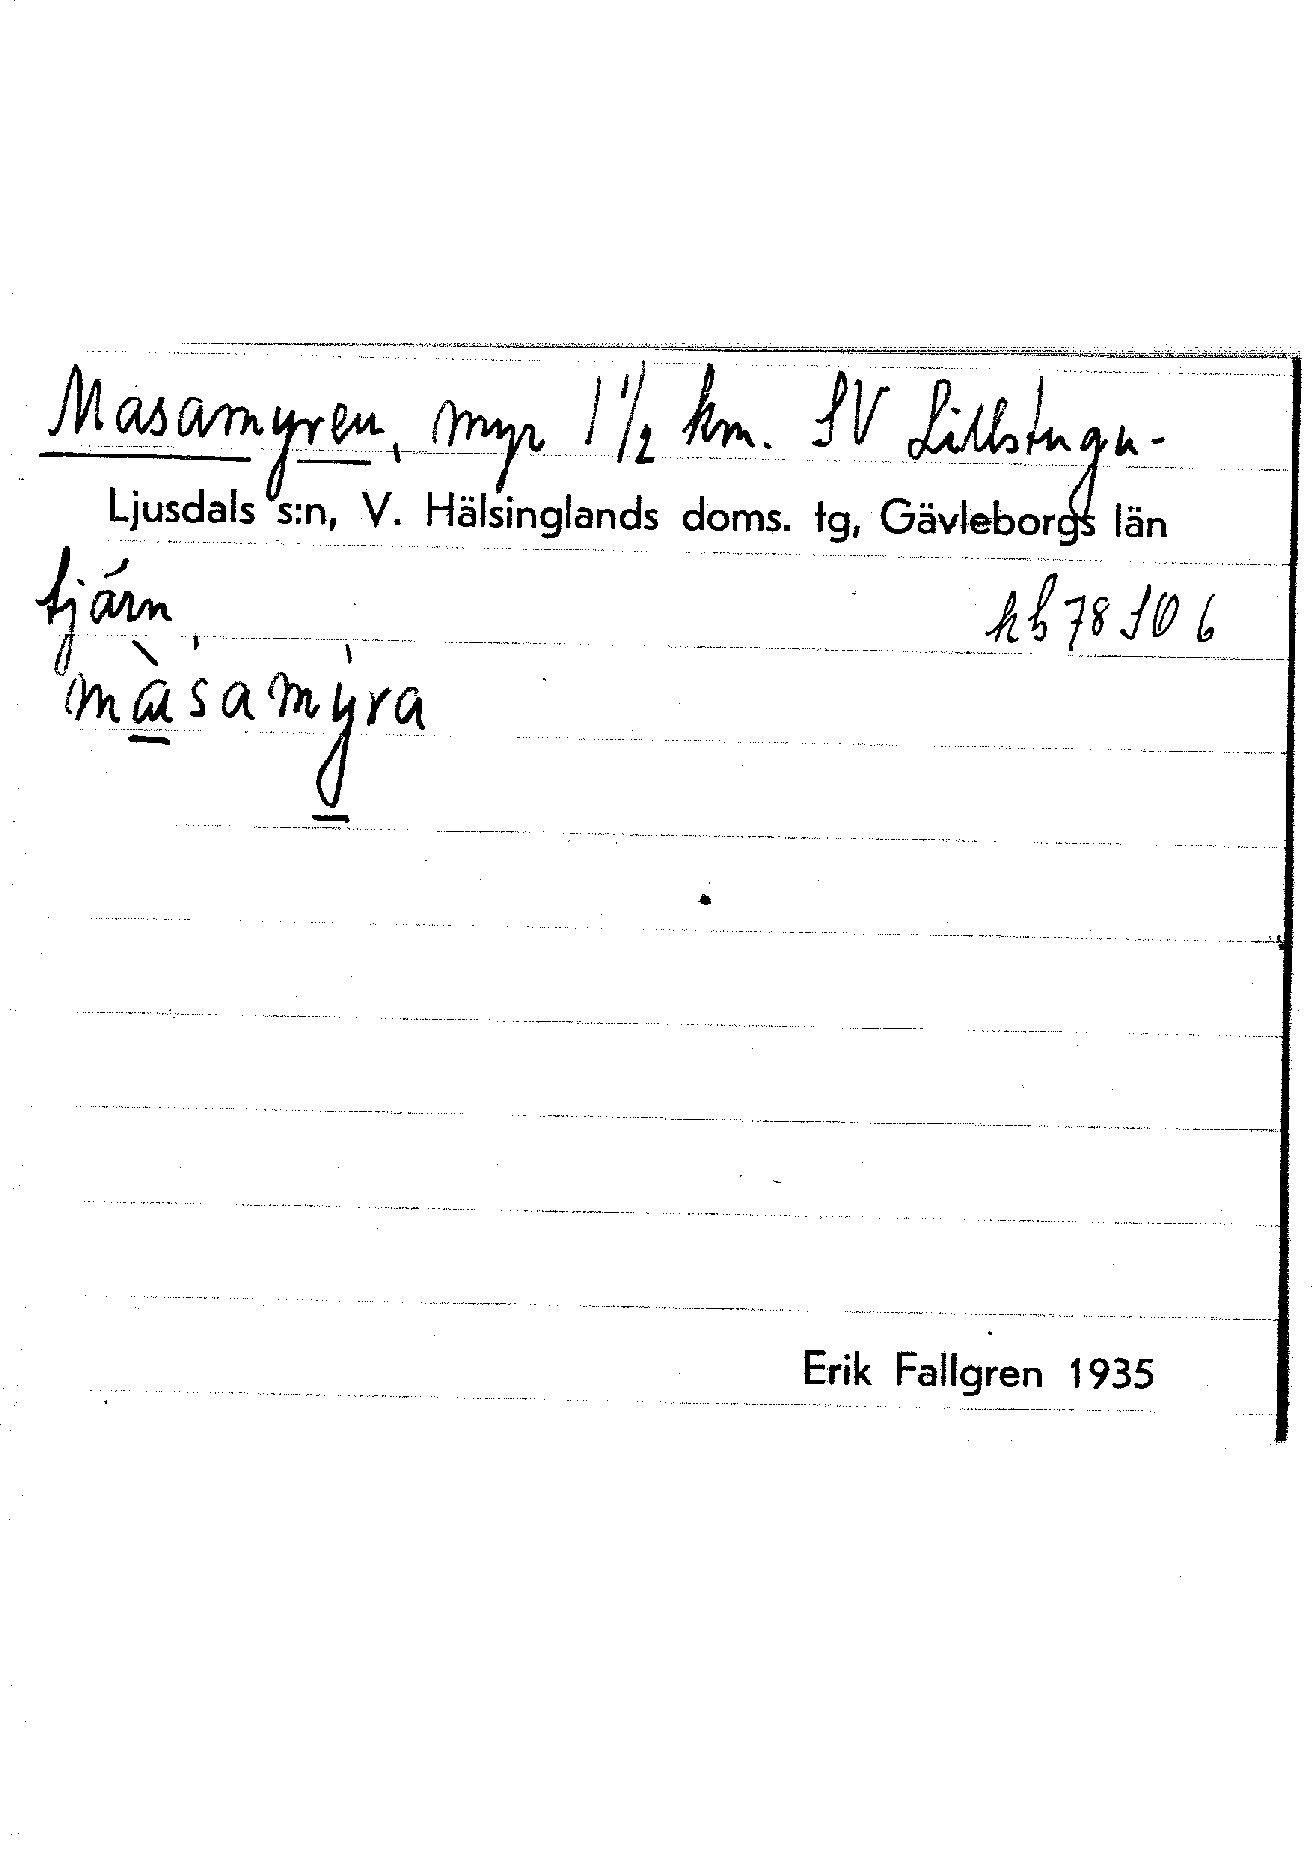 Masamyren, myr 1 1/2 km. SV Lillstugu-
Ljusdals s:n, V. Hälsinglands doms. tg, Gävleborgs län
tjärn
kb 78 SO 6
màsamỳra
Erik Fallgren 1935